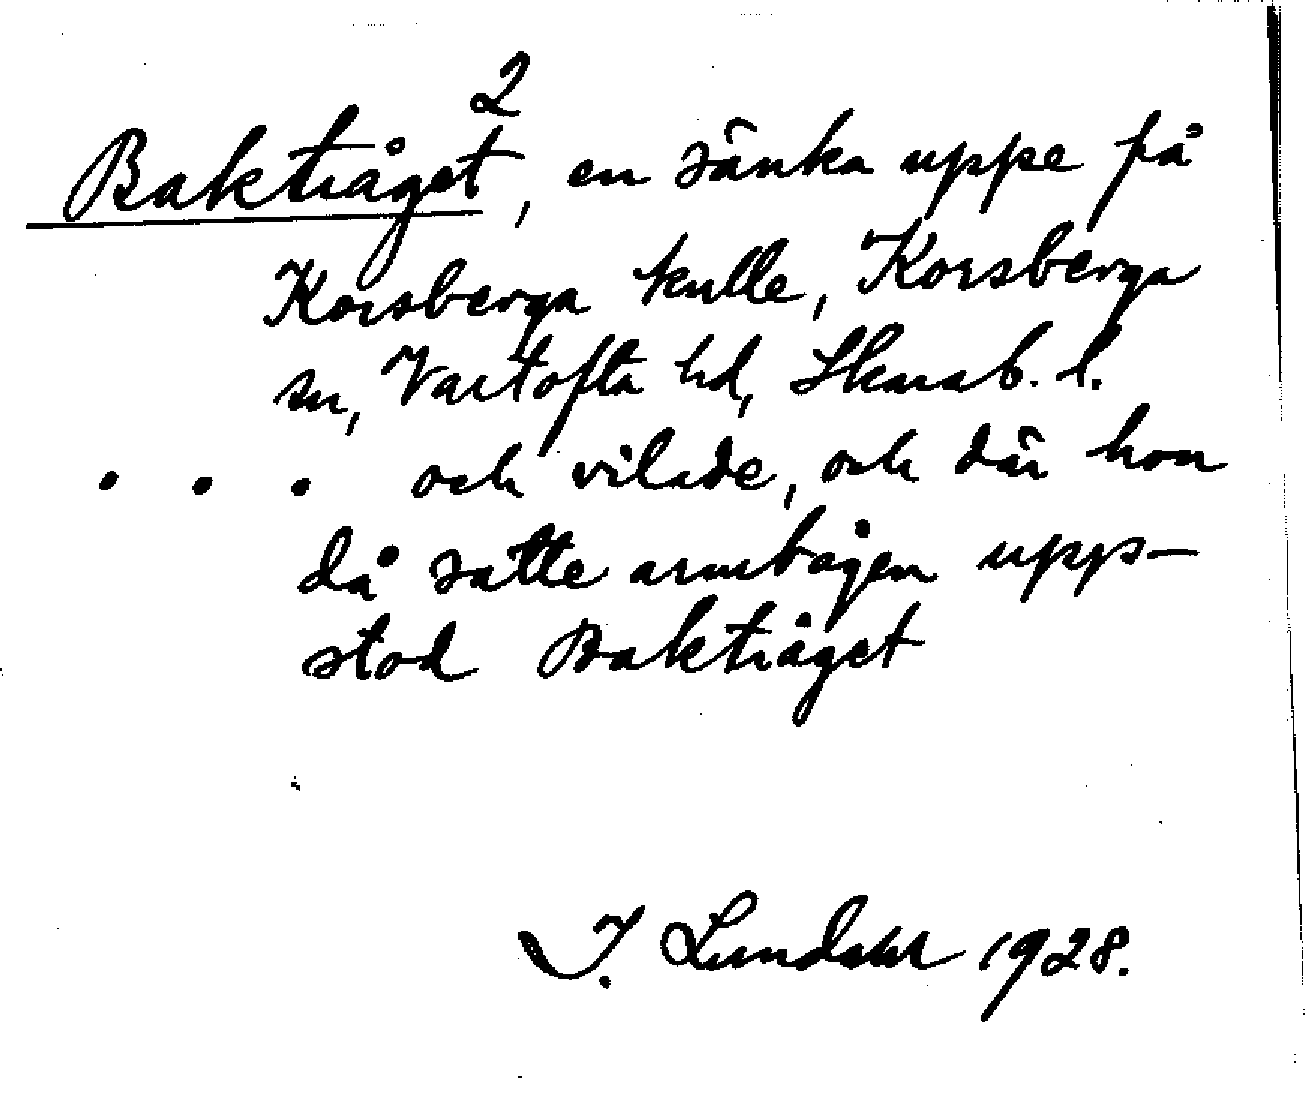 2
Baktråget, en sänka uppe på
Korsberga kulle, Korsberga
sn, Vartofta hd, Skarab. l.
. . . och vilade, och där hon
då satte armbågen upp-
stod Baktråget
I. Lundahl 1928.